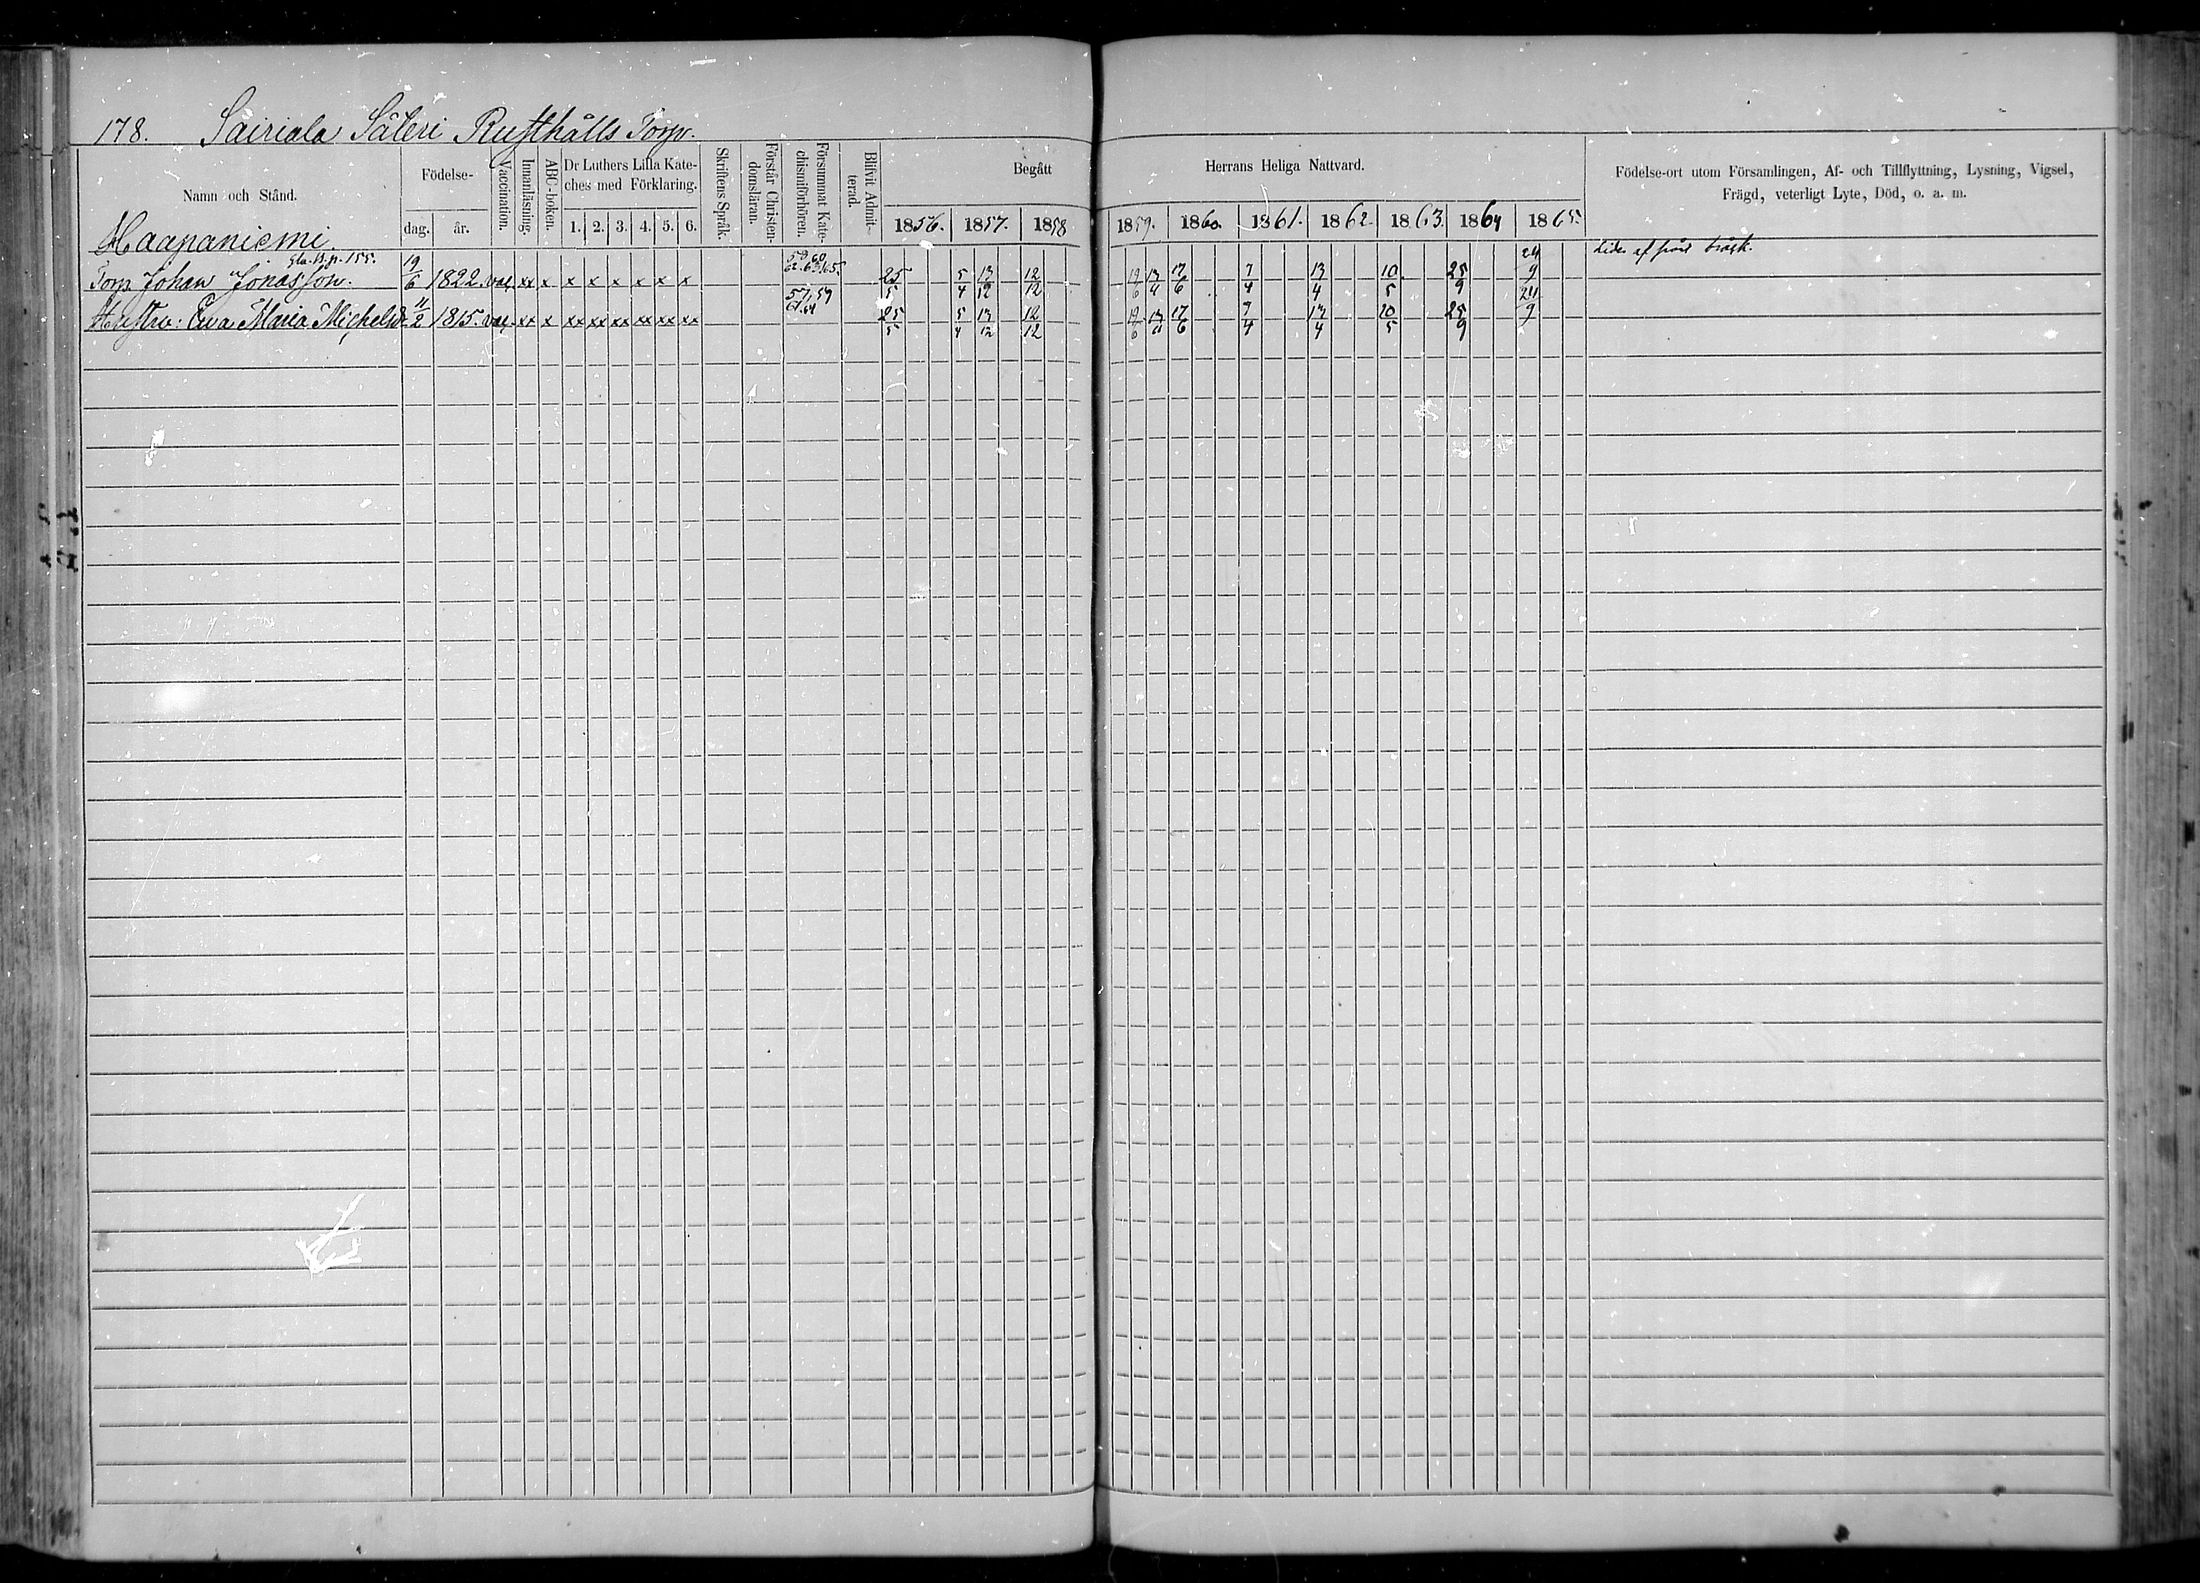 178. Sairiala Säteri Rusthålls Torp.
Namn och Stånd.
Födelse-
dag. år.
Vaccination.
Innanläsning.
ABC-boken.
Dr Luthers Lilla Kate-
ches med Förklaring.
1. 2. 3. 4. 5. 6.
Skriftens Språk.
Förstår Christen-
domsläran.
Försummat Kate-
chismiförhören.
Blifvit Admit-
terad.
Begått Herrans Heliga Nattvard.
1856. 1857. 1858 1859. 1860. 1861. 1862. 1863. 1864 1865.
Födelse-ort utom Församlingen, Af- och Tillflyttning, Lysning, Vigsel,
Frägd, veterligt Lyte, Död, o. a. m.
Haapaniemi.
Gla. B. p. 155.
Torp. Johan Jonasson. 19/6 1822. vac. xx x x x x x x x 59.60 62.63.65. 25/5 5/4 13/12 12/12 19/6 17/6 7/4 13/4 10/5 25/9 24/9 Lider af
Hustru: Eva Maria Michelsd 11/2 1815. vac. xx x xx xx xx xx xx xx 57.59 61.64 25/5 5/4 13/12 12/12 19/6 17/6 7/4 13/4 10/5 25/9 24/9